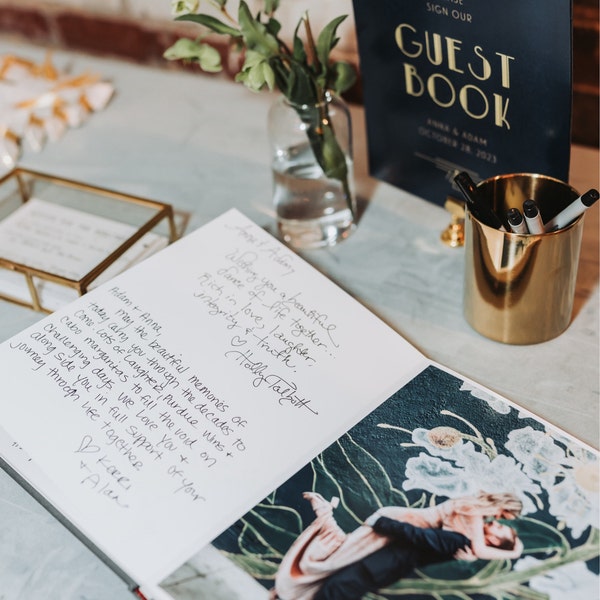 SIGN OUR
GUEST
BOOK
ANNA & ADAM
OCTOBER 28, 2023
Anna & Adam,
Wishing you a beautiful
dance of life together...
Rich in love, laughter,
integrity & truth.
♡ Holly Talbott
Adam & Anna,
may the beautiful memories of
today carry you through the decades to
come. Lots of laughter, Purdue wins &
cabo margaritas to fill the void on
challenging days. We love you &
along side you in full support of your
journey through life together
♡ Kerri
& Alan